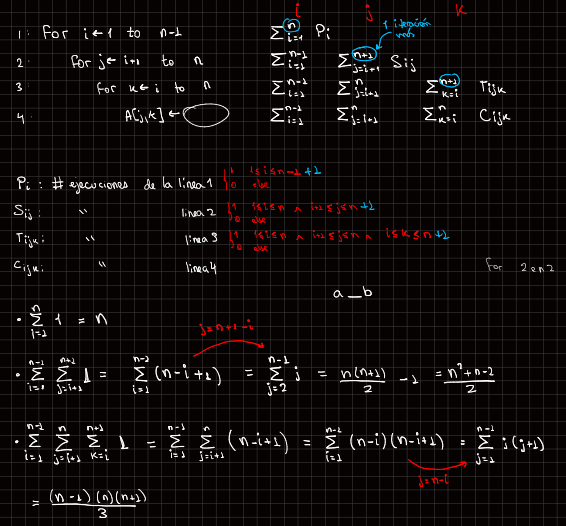 i j k
1: For i ← 1 to n-1 ∑_{i=1}^{n} Pi 1 iteración
2: For j ← i+1 to n ∑_{i=1}^{n-1} ∑_{j=i+1}^{n+1} Sij
3 For k ← i to n ∑_{i=1}^{n-1} ∑_{j=i+1}^{n} ∑_{k=i}^{n+1} Tijk
4. A[j,k] ← ∑_{i=1}^{n-1} ∑_{j=i+1}^{n} ∑_{k=i}^{n} Cijk
Pi : # ejecuciones de la linea 1 { 1 1≤i≤n-1 +1
0 else
Sij : " linea 2 { 1 1≤i≤n ∧ i+1≤j≤n +1
0 else
Tijk : " linea 3 { 1 1≤i≤n ∧ i+1≤j≤n ∧ i≤k≤n +1
0 else
Cijk : " linea 4
For 2 en 2
a _ b
• ∑_{i=1}^{n} 1 = n
j=n+1-i
• ∑_{i=1}^{n-1} ∑_{j=i+1}^{n+1} 1 = ∑_{i=1}^{n-1} (n-i+1) = ∑_{j=2}^{n-1} j = n(n+1)/2 -1 = n²+n-2/2
• ∑_{i=1}^{n-1} ∑_{j=i+1}^{n} ∑_{k=i}^{n+1} 1 = ∑_{i=1}^{n-1} ∑_{j=i+1}^{n} (n-i+1) = ∑_{i=1}^{n-1} (n-i)(n-i+1) = ∑_{j=1}^{n-1} j(j+1)
j=n-i
= (n-1)(n)(n+1)/3